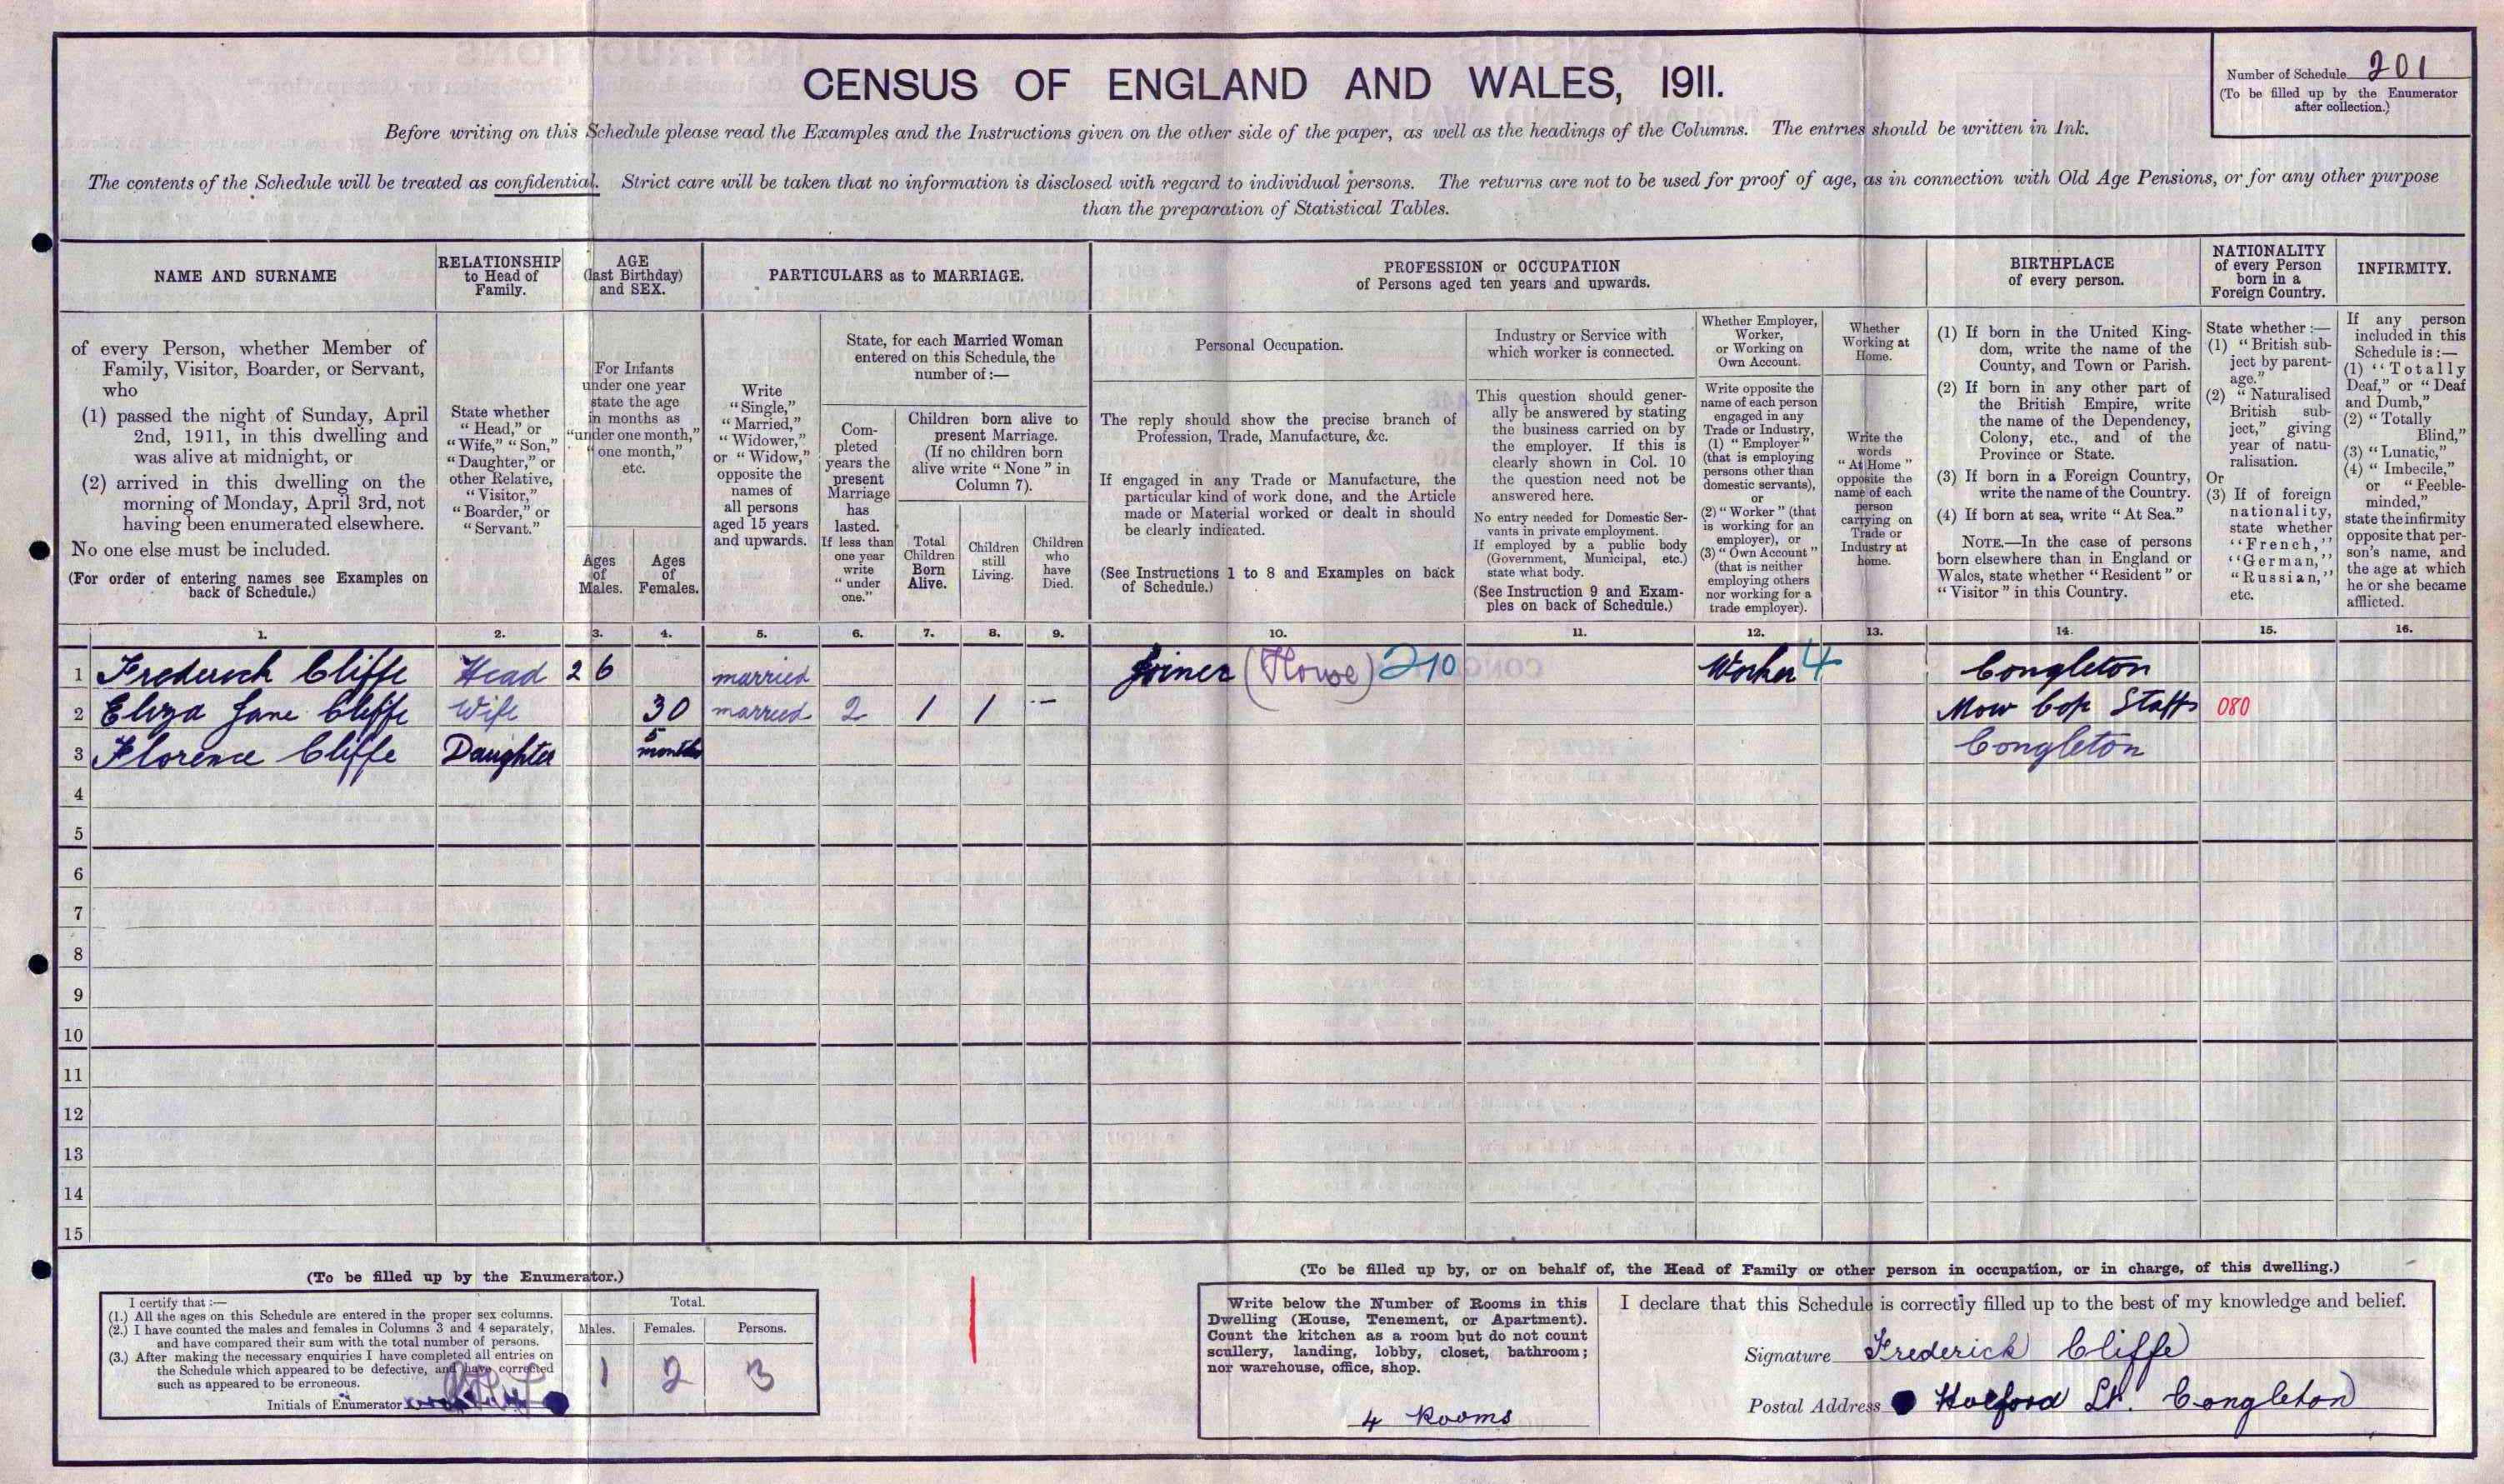 CENSUS OF ENGLAND AND WALES, 1911.
Number of Schedule 201
(To be filled up by the Enumerator
after collection.)
Before writing on this Schedule please read the Examples and the Instructions given on the other side of the paper, as well as the headings of the Columns. The entries should be written in Ink.
The contents of the Schedule will be treated as confidential. Strict care will be taken that no information is disclosed with regard to individual persons. The returns are not to be used for proof of age, as in connection with Old Age Pensions, or for any other purpose
than the preparation of Statistical Tables.
NAME AND SURNAME
of every Person, whether Member of
Family, Visitor, Boarder, or Servant,
who
(1) passed the night of Sunday, April
2nd, 1911, in this dwelling and
was alive at midnight, or
(2) arrived in this dwelling on the
morning of Monday, April 3rd, not
having been enumerated elsewhere.
No one else must be included.
(For order of entering names see Examples on
back of Schedule.)
RELATIONSHIP
to Head of
Family.
State whether
"Head," or
"Wife," "Son,"
"Daughter," or
other Relative,
"Visitor,"
"Boarder," or
"Servant."
AGE
(last Birthday)
and SEX.
For Infants
under one year
state the age
in months as
"under one month,"
"one month,"
etc.
Ages
of
Males.
Ages
of
Females.
PARTICULARS as to MARRIAGE.
Write
"Single,"
"Married,"
"Widower,"
or "Widow,"
opposite the
names of
all persons
aged 15 years
and upwards.
State, for each Married Woman
entered on this Schedule, the
number of :—
Com-
pleted
years the
present
Marriage
has
lasted.
If less than
one year
write
"under
one."
Children born alive to
present Marriage.
(If no children born
alive write "None" in
Column 7).
Total
Children
Born
Alive.
Children
still
Living.
Children
who
have
Died.
PROFESSION or OCCUPATION
of Persons aged ten years and upwards.
Personal Occupation.
The reply should show the precise branch of
Profession, Trade, Manufacture, &c.
If engaged in any Trade or Manufacture, the
particular kind of work done, and the Article
made or Material worked or dealt in should
be clearly indicated.
(See Instructions 1 to 8 and Examples on back
of Schedule.)
Industry or Service with
which worker is connected.
This question should gener-
ally be answered by stating
the business carried on by
the employer. If this is
clearly shown in Col. 10
the question need not be
answered here.
No entry needed for Domestic Ser-
vants in private employment.
If employed by a public body
(Government, Municipal, etc.)
state what body.
(See Instruction 9 and Exam-
ples on back of Schedule.)
Whether Employer,
Worker,
or Working on
Own Account.
Write opposite the
name of each person
engaged in any
Trade or Industry,
(1) "Employer"
(that is employing
persons other than
domestic servants),
or
(2) "Worker" (that
is working for an
employer), or
(3) "Own Account"
(that is neither
employing others
nor working for a
trade employer).
Whether
Working at
Home.
Write the
words
"At Home"
opposite the
name of each
person
carrying on
Trade or
Industry at
home.
BIRTHPLACE
of every person.
(1) If born in the United King-
dom, write the name of the
County, and Town or Parish.
(2) If born in any other part of
the British Empire, write
the name of the Dependency,
Colony, etc., and of the
Province or State.
(3) If born in a Foreign Country,
write the name of the Country.
(4) If born at sea, write "At Sea."
NOTE.—In the case of persons
born elsewhere than in England or
Wales, state whether "Resident" or
"Visitor" in this Country.
NATIONALITY
of every Person
born in a
Foreign Country.
State whether :—
(1) "British sub-
ject by parent-
age."
(2) "Naturalised
British sub-
ject," giving
year of natu-
ralisation.
Or
(3) If of foreign
nationality,
state whether
"French,"
"German,"
"Russian,"
etc.
INFIRMITY.
If any person
included in this
Schedule is :—
(1) "Totally
Deaf," or "Deaf
and Dumb,"
(2) "Totally
Blind,"
(3) "Lunatic,"
(4) "Imbecile,"
or "Feeble-
minded,"
state the infirmity
opposite that per-
son's name, and
the age at which
he or she became
afflicted.
1. 2. 3. 4. 5. 6. 7. 8. 9. 10. 11. 12. 13. 14. 15. 16.
1 Frederick Cliffe Head 26 married Joiner 210 Worker 4 Congleton
2 Eliza Jane Cliffe Wife 30 married 2 1 1 — Mow Cop Staffs 080
3 Florence Cliffe Daughter 5 months Congleton
4
5
6
7
8
9
10
11
12
13
14
15
(To be filled up by the Enumerator.)
I certify that :—
(1.) All the ages on this Schedule are entered in the proper sex columns.
(2.) I have counted the males and females in Columns 3 and 4 separately,
and have compared their sum with the total number of persons.
(3.) After making the necessary enquiries I have completed all entries on
the Schedule which appeared to be defective, and have corrected
such as appeared to be erroneous.
Initials of Enumerator
Total.
Males. Females. Persons.
1 2 3
(To be filled up by, or on behalf of, the Head of Family or other person in occupation, or in charge, of this dwelling.)
Write below the Number of Rooms in this
Dwelling (House, Tenement, or Apartment).
Count the kitchen as a room but do not count
scullery, landing, lobby, closet, bathroom;
nor warehouse, office, shop.
4 Rooms
I declare that this Schedule is correctly filled up to the best of my knowledge and belief.
Signature Frederick Cliffe
Postal Address Holford St. Congleton